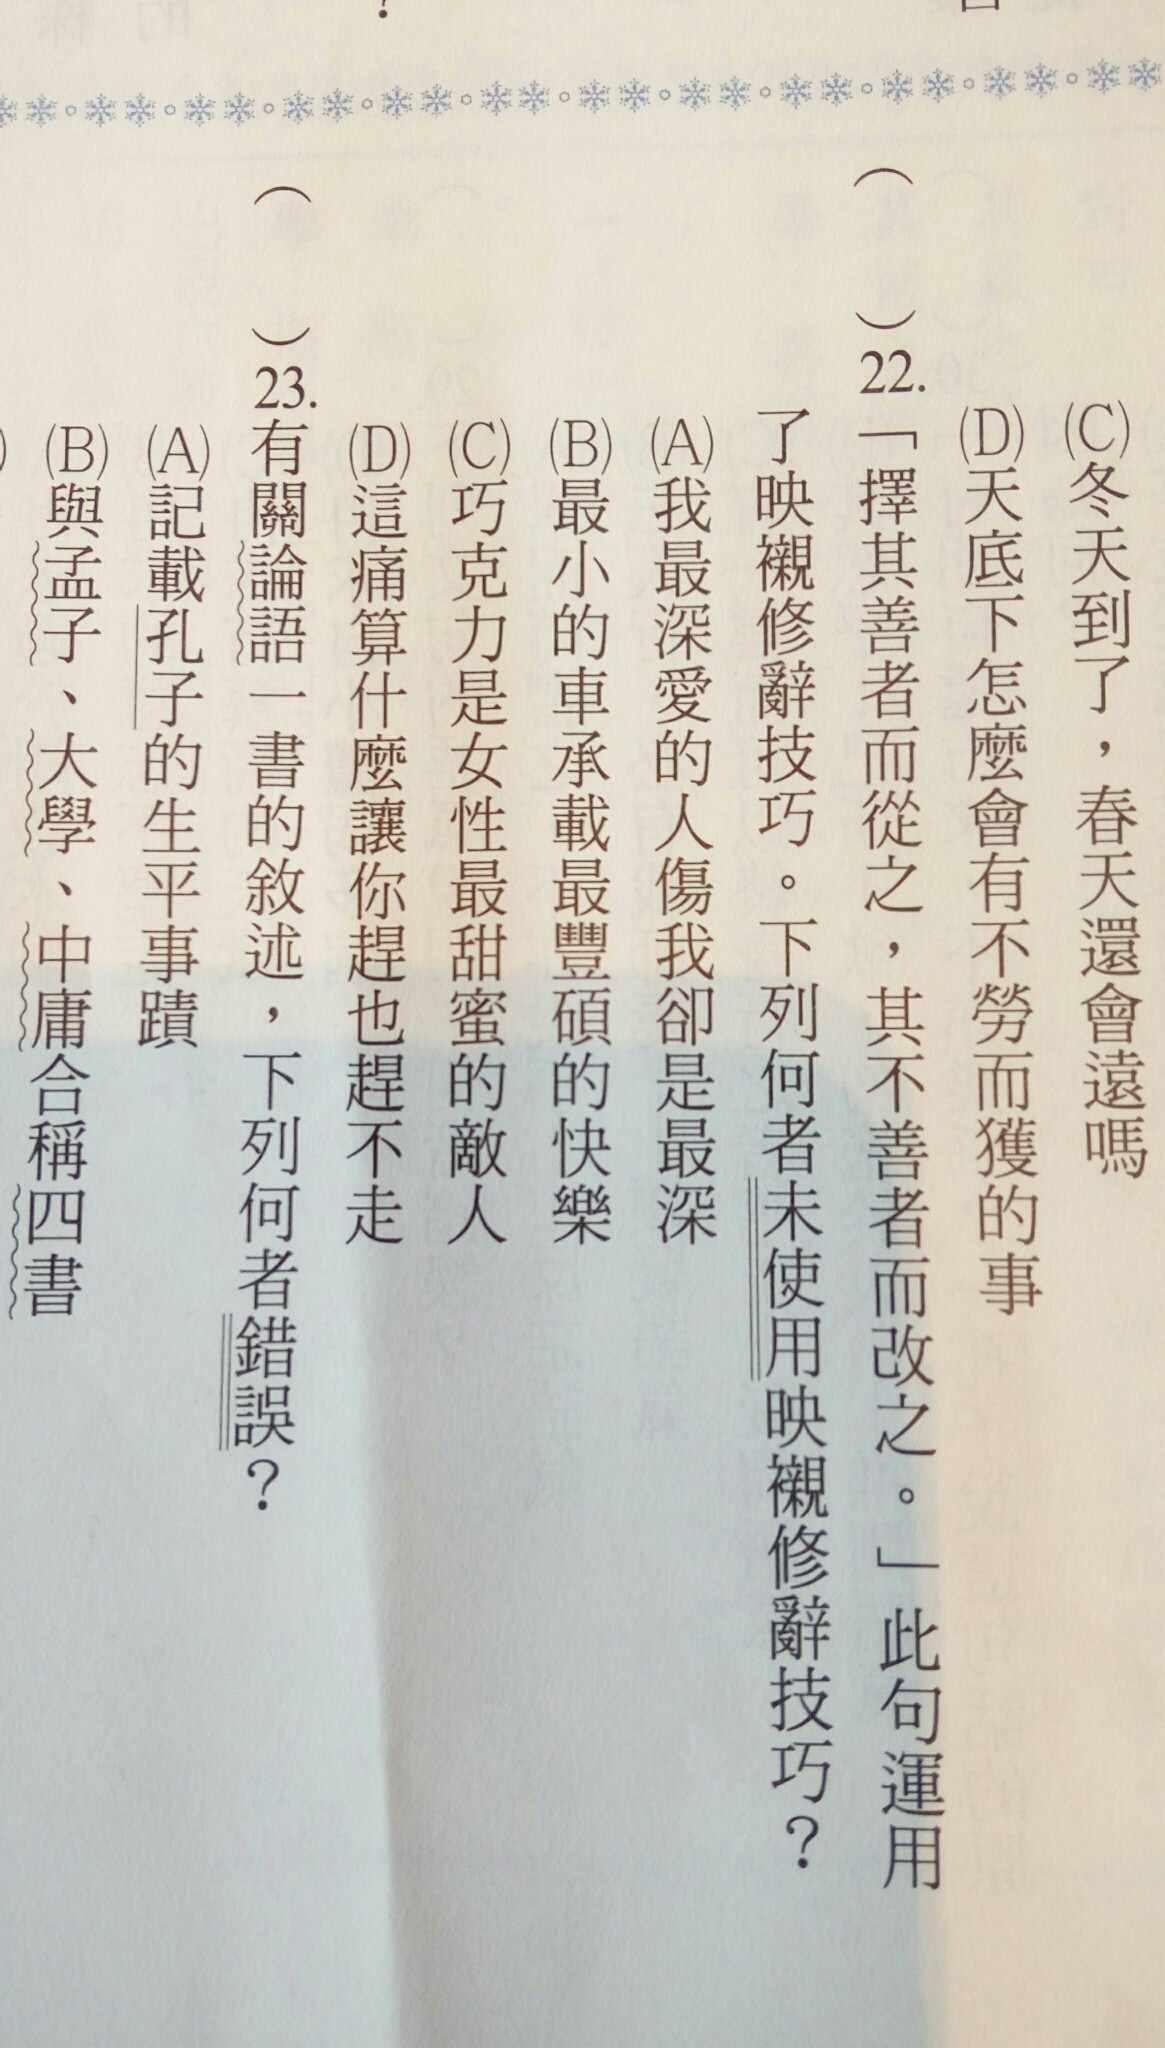 (C)冬天到了，春天還會遠嗎
(D)天底下怎麼會有不勞而獲的事
（　）22.「擇其善者而從之，其不善者而改之。」此句運用
了映襯修辭技巧。下列何者未使用映襯修辭技巧？
(A)我最深愛的人傷我卻是最深
(B)最小的車承載最豐碩的快樂
(C)巧克力是女性最甜蜜的敵人
(D)這痛算什麼讓你趕也趕不走
（　）23.有關論語一書的敘述，下列何者錯誤？
(A)記載孔子的生平事蹟
(B)與孟子、大學、中庸合稱四書